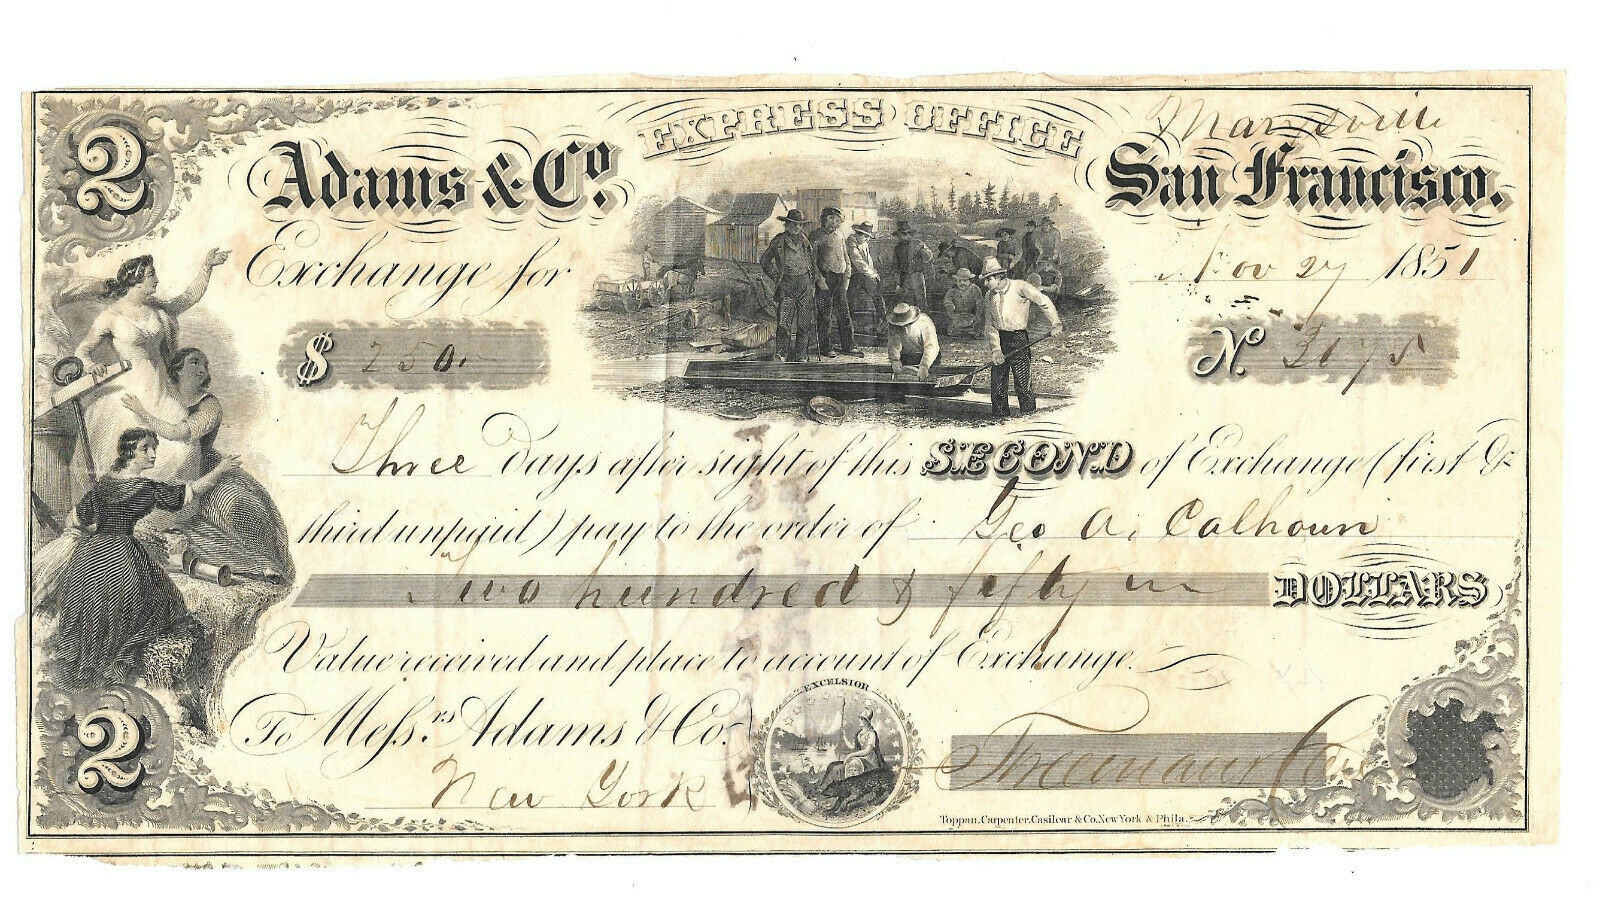 2
EXPRESS OFFICE
Marysville
Adams & Co.
San Francisco.
Exchange for
Nov 27 1851
$ 250.
No. 3175
Three Days after sight of this SECOND of Exchange (first &
third unpaid) pay to the order of Geo A. Calhoun
Two hundred & fifty DOLLARS
Value received and place to account of Exchange.
EXCELSIOR
To Messrs Adams & Co.
2
Freeman & Co
New York
Toppan, Carpenter, Casilear & Co. New York & Phila.